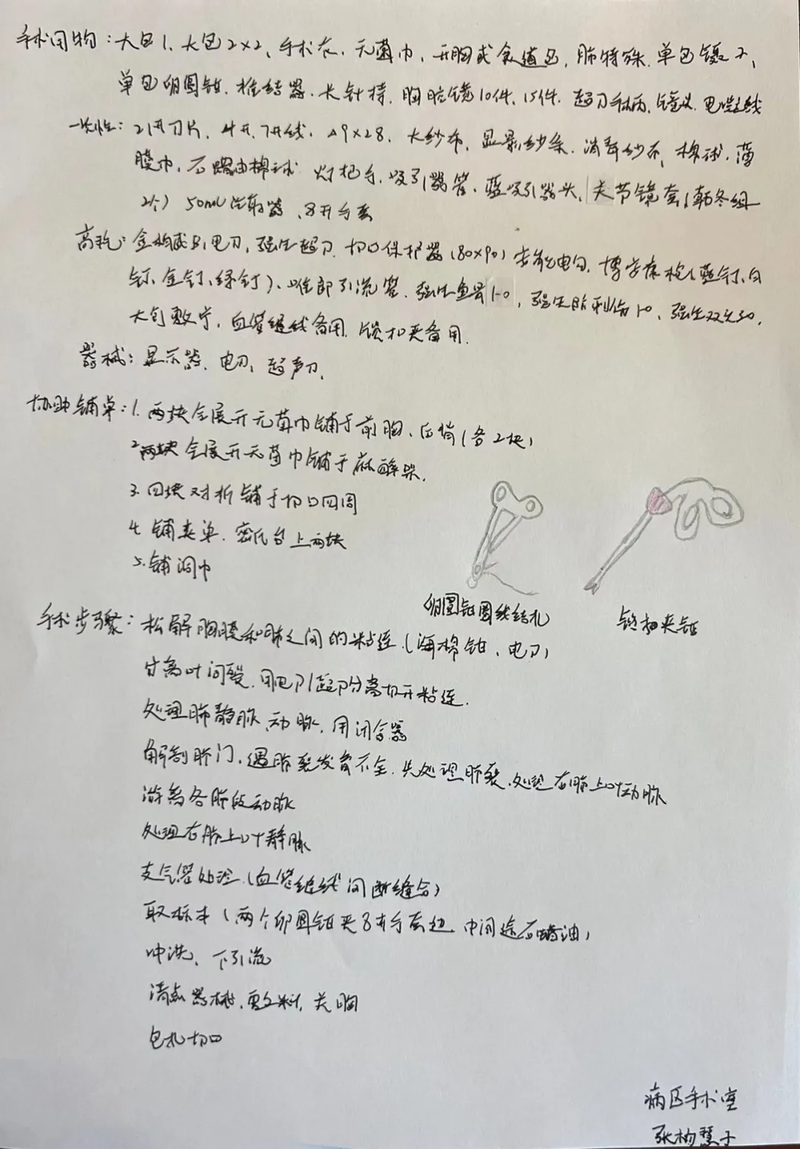 手术用物：大包1、大包2×2、手术衣、无菌巾、开胸或食道包，肺特殊、单包镊子，
单包卵圆钳、推结器、长针持、胸腔镜10件、15件、超刀手柄、镜头、电凝线
一次性：21#刀片、4#、7#线、△9×28、大纱布、显影纱条、消毒纱布、棉球、薄
膜巾、石蜡油棉球 灯把手、吸引器管、蓝吸引器头、关节镜套(韩冬组
2个) 50ml注射器、8#手套
高耗：电刀，强生超刀 切口保护器(80×90) 电勾，
钉、金钉、绿钉)、引流管、强生鱼骨1-0，强生1-0，强生
血管缝线备用、锁扣夹备用.
器械：显示器、电刀、超声刀.
协助铺单：1.两块全展开无菌巾铺于前胸、后背(各2块)
2.两块全展开无菌巾铺于麻醉架.
3.四块对折铺于切口四周
4.铺夹单、器械台上两块
5.铺洞巾
卵圆钳圈线结扎
锁扣夹钳
手术步骤：松解胸膜和肺之间的粘连.(海绵钳、电刀)
分离叶间裂，用电刀/超刀分离切开粘连.
处理肺静脉、动脉，用闭合器
解剖肺门，遇肺裂发育不全，先处理肺裂、处理右肺上叶动脉
游离各肺段动脉
处理右肺上叶静脉
支气管处理.(血管缝线间断缝合)
取标本(两个卵圆钳夹8#手套边 中间涂石蜡油)
冲洗、下引流
清点器械、敷料、关胸
包扎切口
病区手术室